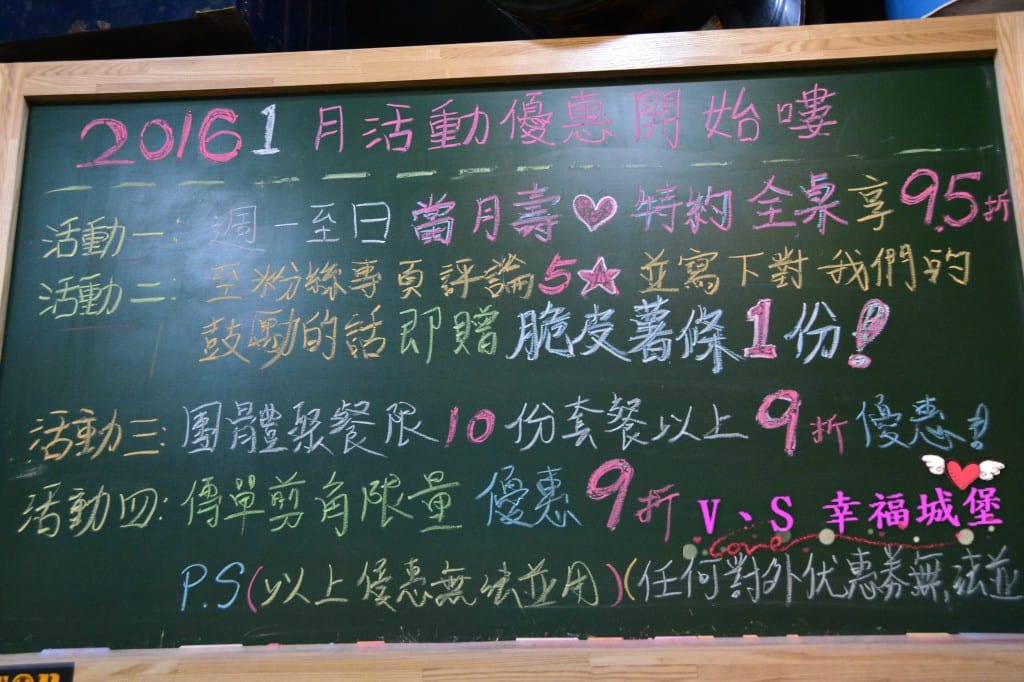 2016 1月活動優惠開始嘍
活動一: 週一至日當月壽♥特約全桌享9.5折
活動二: 至粉絲專頁評論5★並寫下對我們的
鼓勵的話即贈脆皮薯條1份!
活動三: 團體聚餐限10份套餐以上9折優惠!
活動四: 傳單剪角限量優惠9折
V、S 幸福城堡
Love
P.S(以上優惠無法並用)(任何對外优惠券無法並